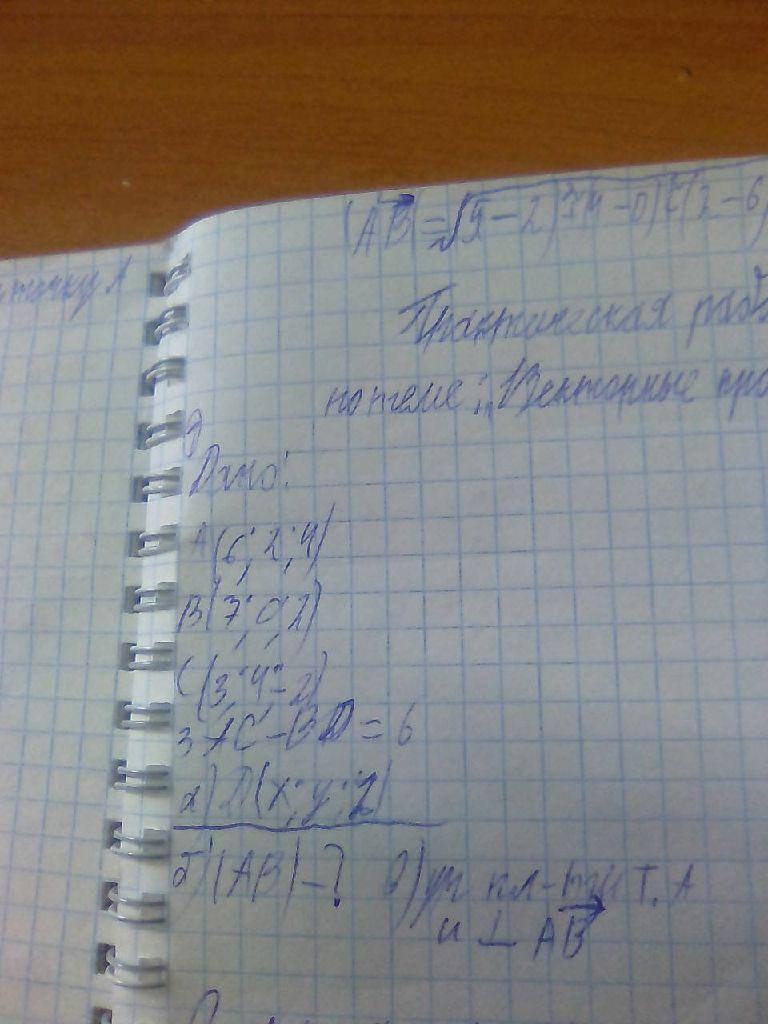 |AB|=√(9-2)²+(4-0)²+(2-6)
Практическая раб
по теме: „Векторные про
Дано:
A(6;2;4)
B(7;0;2)
C(3;4;-2)
3AC-BD=6
а) D(x;y;z)
б) |AB|-? в) ур пл-ти т. A
и ⊥ AB